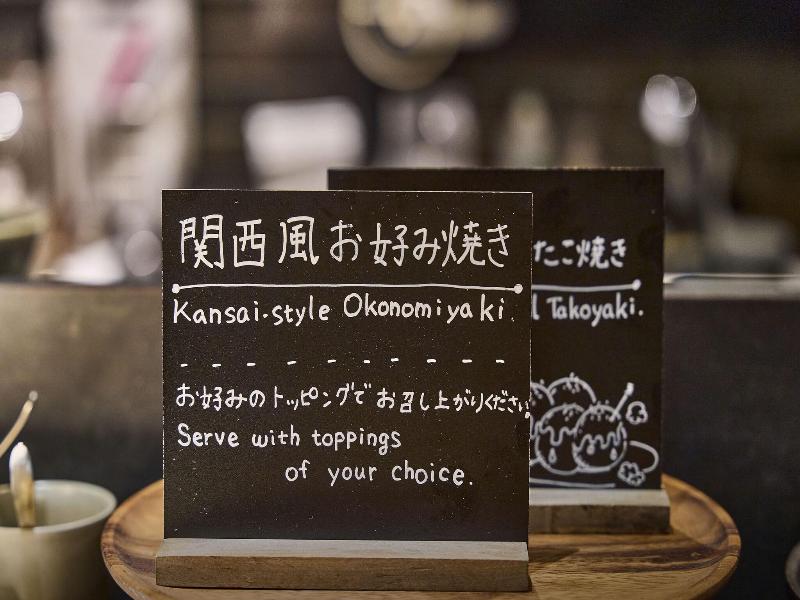 関西風お好み焼き
Kansai-style Okonomiyaki.
お好みのトッピングでお召し上がりください
Serve with toppings
of your choice.
たこ焼き
Takoyaki.